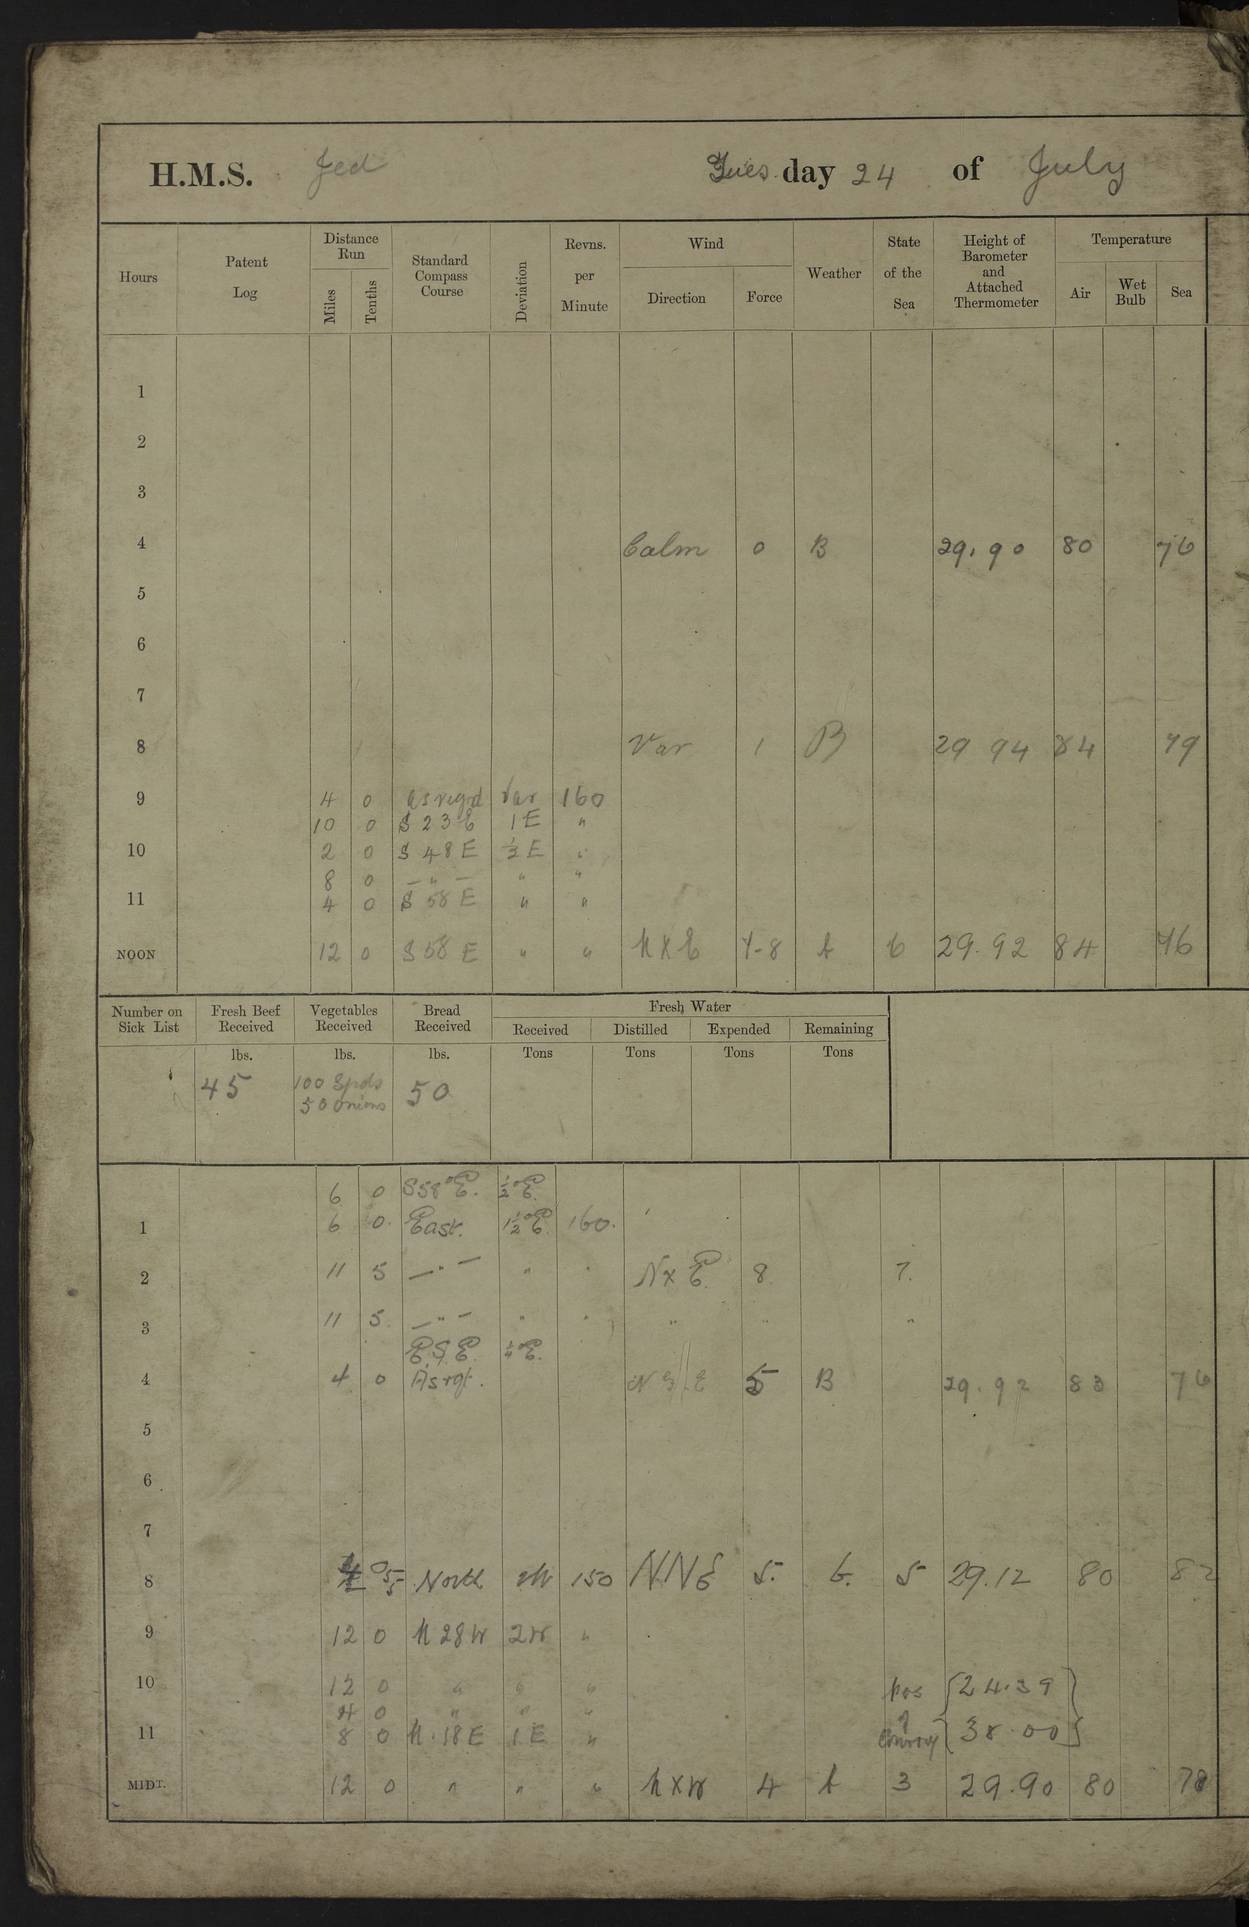 H.M.S. Jed Tues. day 24 of July
Hours Patent Log Distance Run Miles Tenths Standard Compass Course Deviation Revns. per Minute Wind Direction Force Weather State of the Sea Height of Barometer and Attached Thermometer Temperature Air Wet Bulb Sea
1
2
3
4 Calm 0 B 29.90 80 76
5
6
7
8 Var 1 B 29 94 84 79
9 4 0 as reqrd Var 160
10 0 S 23 E 1 E "
10 2 0 S 48 E ½ E "
8 0 — " — " "
11 4 0 S 58 E " "
NOON 12 0 S 58 E " " N x E 7-8 b 6 29.92 84 76
Number on Sick List Fresh Beef Received Vegetables Received Bread Received Fresh Water
Received Distilled Expended Remaining
lbs. lbs. lbs. Tons Tons Tons Tons
45 100 Spds 50
50 Onions
6 0 S58°E. ½°E.
1 6 0. East. 1½°E. 160.
2 11 5 — " — " " N x E 8. 7.
3 11 5. — " — " " " " "
E.S.E. ¼°E.
4 4 0 As rqt. 5 B 29.92 83 76
5
6
7
8 North 150 NNE 5. b. 5 29.12 80 82
9 12 0 N 28 W 2 W "
10 12 0 " " " Pos {24.39}
4 0 " " " of
11 8 0 N. 18 E 1 E " Convoy {38.00}
MIDT. 12 0 " " " N x W 4 b 3 29.90 80 78